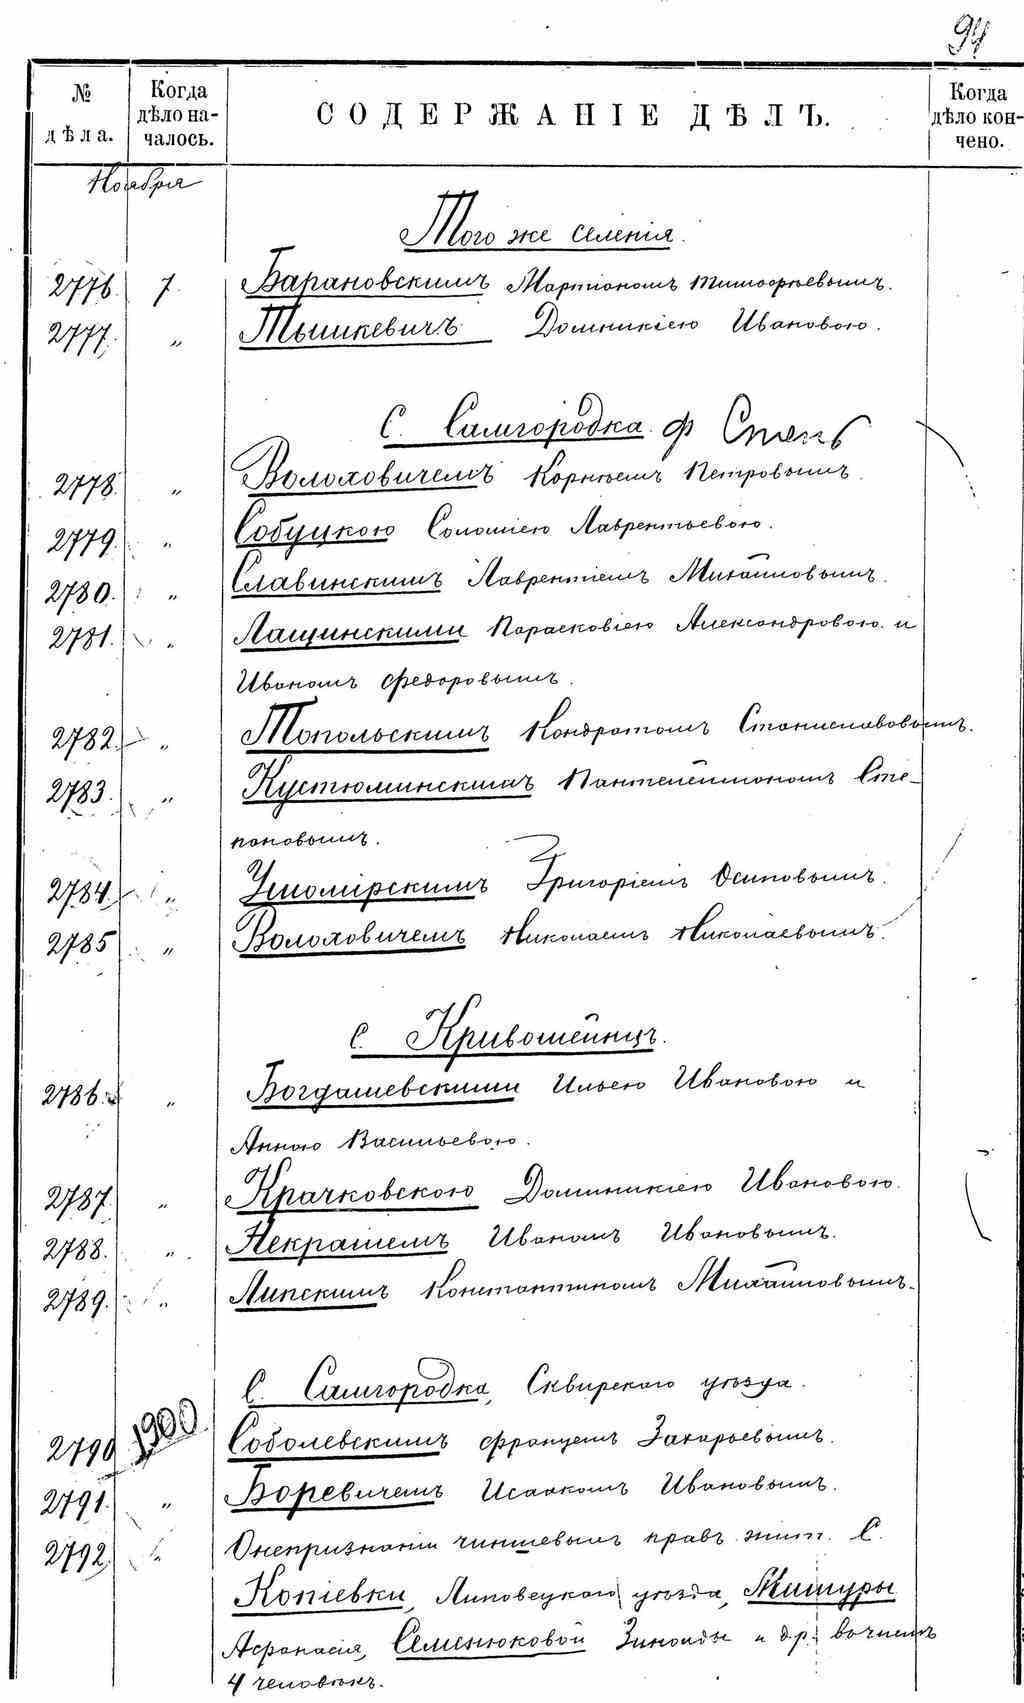 94
№ дѣла.
Когда дѣло началось.
СОДЕРЖАНІЕ ДѢЛЪ.
Когда дѣло кончено.
Ноября
Того же селенія.
2776. 7. Барановскимъ Мартіаномъ Тимофѣевымъ.
2777. „ Тышкевичъ Домникіею Ивановою.
С. Самгородка.
2778. „ Волоховичемъ Корнѣемъ Петровымъ.
2779. „ Собуцкою Соломіею Лаврентьевою.
2780. „ Славинскимъ Лаврентіемъ Михайловымъ.
2781. „ Лащинскими Парасковіею Александровою и
Иваномъ Федоровымъ.
2782. „ Топольскимъ Кондратомъ Станиславовымъ.
2783. „ Кустюминскимъ Пантелеймономъ Сте-
пановымъ.
2784. „ Умомірскимъ Григоріемъ Осиповымъ.
2785 „ Волоховичемъ Николаемъ Николаевымъ.
С. Кривошеинцъ.
2786. „ Богдашевскими Ильею Ивановою и
Анною Васильевою.
2787. „ Крачковскою Доминикіею Ивановою.
2788. „ Некрашемъ Иваномъ Ивановымъ.
2789. „ Липскимъ Константиномъ Михайловымъ.
С. Самгородка, Сквирскаго уѣзда.
2790 1900. Соболевскимъ Францемъ Захарьевымъ.
2791. „ Боревичемъ Исаакомъ Ивановымъ.
2792. „ О непризнаніи чиншевымъ правъ жит. С.
Копіевки, Липовецкаго уѣзда, Мишуры
Афанасія, Семенюковой Зинаиды и др. въ числѣ
4 человѣкъ.